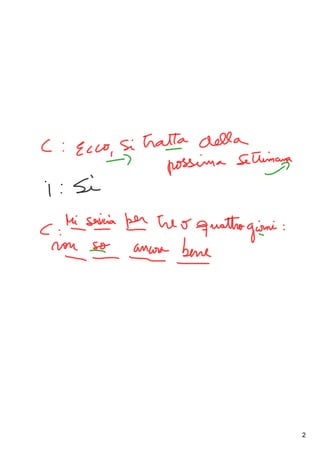 C: Ecco, si tratta della
possima settimana
i: Si
C: Mi servia per tre o quattro giorni:
non so ancora bene
2